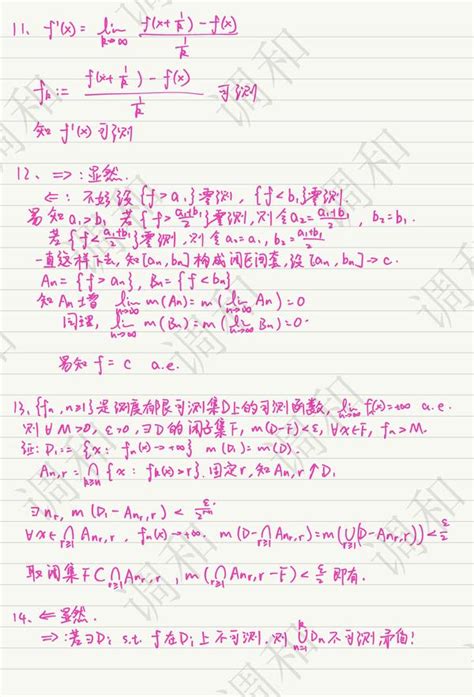 11、f'(x) = lim_{k→∞} (f(x+1/k) - f(x)) / (1/k)
f_k := (f(x+1/k) - f(x)) / (1/k) 可测
知 f'(x) 可测
12、=>: 显然.
<=: 不妨设 {f > a_1} 零测, {f < b_1} 零测.
易知 a_1 > b_1 若 {f > (a_1+b_1)/2} 零测, 则令 a_2 = (a_1+b_1)/2, b_2 = b_1.
若 {f < (a_1+b_1)/2} 零测, 则令 a_2 = a_1, b_2 = (a_1+b_1)/2
一直这样下去, 知 [a_n, b_n] 构成闭区间套, 设 [a_n, b_n] → c.
A_n = {f > a_n}, B_n = {f < b_n}
知 A_n 增 lim_{n→∞} m(A_n) = m(lim_{n→∞} A_n) = 0
同理, lim_{n→∞} m(B_n) = m(lim_{n→∞} B_n) = 0.
易知 f = c a.e.
13、{f_n, n≥1} 是测度有限可测集D上的可测函数, lim_{n→∞} f(x) = +∞ a.e.
则 ∀ M>0, ε>0, ∃ D 的闭子集 F, m(D-F)<ε, ∀x∈F, f_n>M.
证: D_1 = {x: f_n(x) → +∞} m(D_1) = m(D).
A_{n,r} = ⋂_{k≥n} {x: f_k(x) > r}. 固定 r, 知 A_{n,r} ↑ D_1
∃ n_r, m(D_1 - A_{n_r,r}) <
∀x∈⋂_{r≥1} A_{n_r,r}, f_n(x) → +∞. m(D - ⋂_{r≥1} A_{n_r,r}) = m(⋃_{r≥1}(D - A_{n_r,r})) < ε/2
取闭集 F ⊂ ⋂_{r≥1} A_{n_r,r}, m(⋂_{r≥1} A_{n_r,r} - F) < ε/2 即有.
14、<= 显然.
=>: 若∃D_i s.t. f 在 D_i 上不可测. 则 ⋃_{n=1}^{k} D_n 不可测, 矛盾!
调和
调和
调和
调和
调和
调和
调和
调和